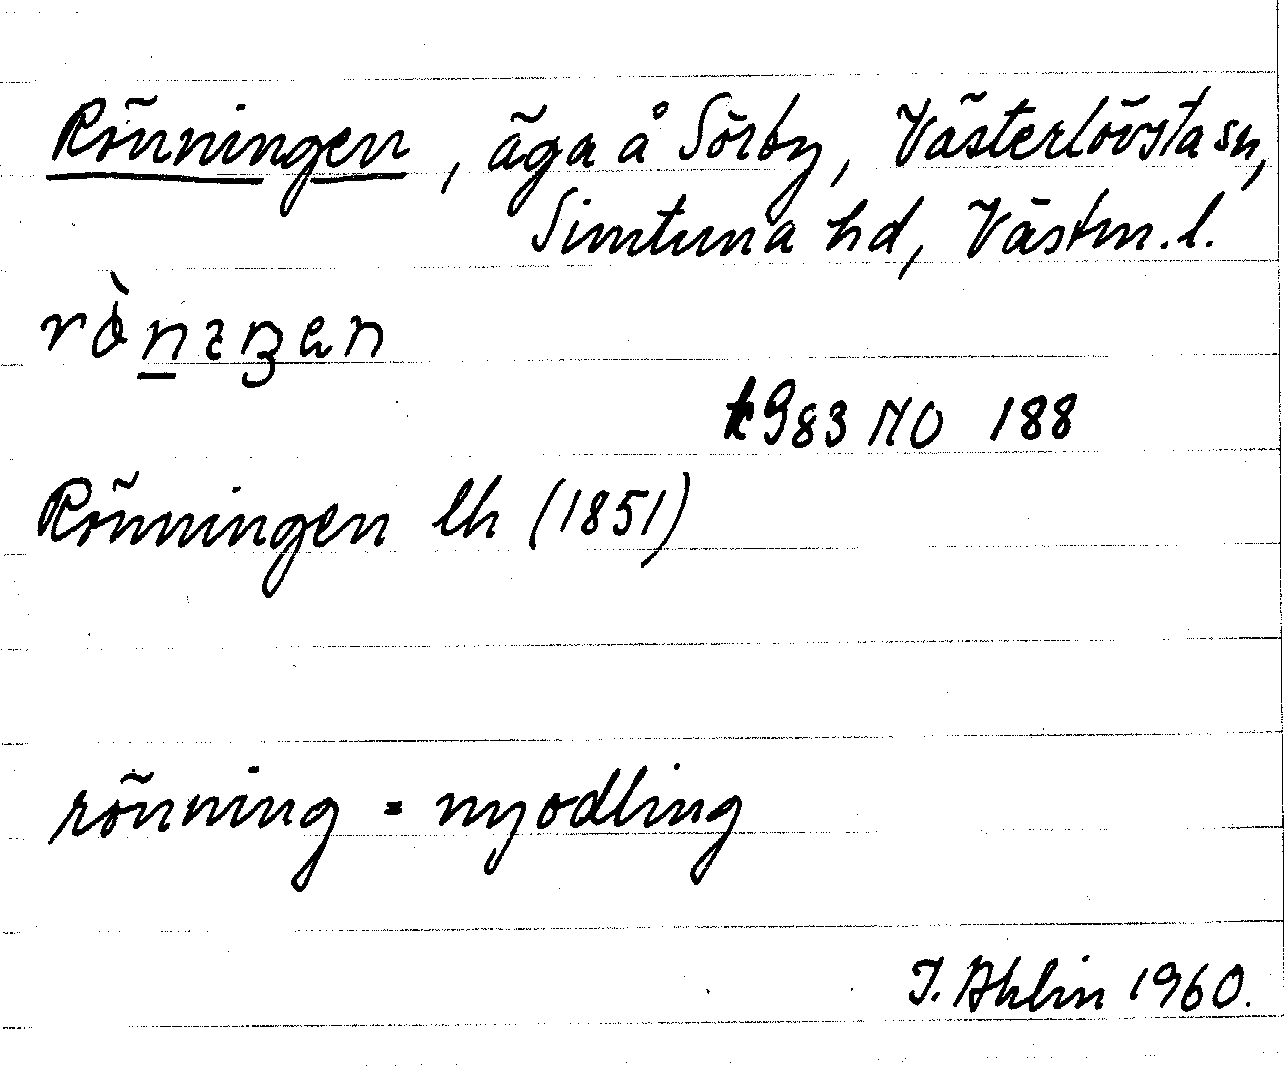 Rönningen, äga å Sörby, Västerlövsta sn,
Simtuna hd, Västm. l.
k983 NO 188
Rönningen lh (1851)
rönning = nyodling
J. Ahlin 1960.